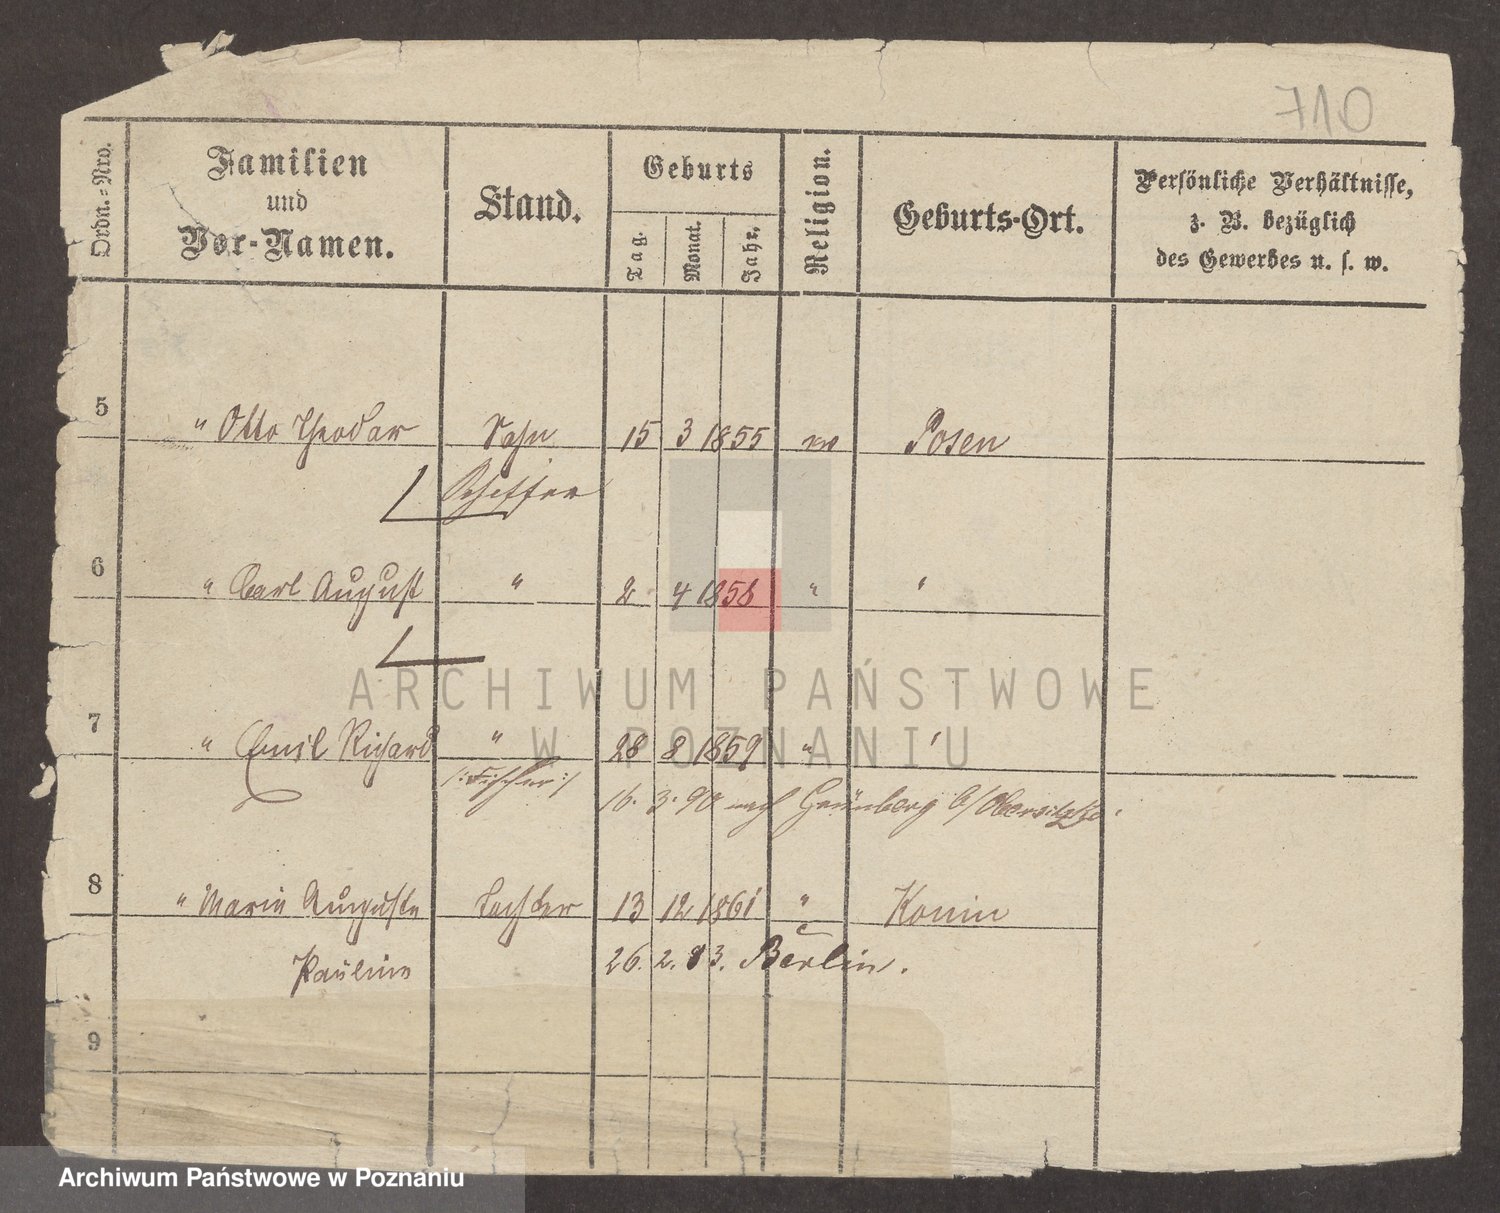 710
Ordn.-Nro.
Familien
und
Vor-Namen.
Stand.
Geburts
Tag.
Monat.
Jahr.
Religion.
Geburts-Ort.
Persönliche Verhältnisse,
z. B. bezüglich
des Gewerbes u. s. w.
5 " Otto Theodor Sohn 15 3 1855 ev Posen
6 " Carl August " 2 4 1858 " "
ARCHIWUM PAŃSTWOWE
W POZNANIU
7 " Emil Richard " 28 8 1859 " "
/: Fischer :/
16. 3. 90 nach Grünberg b/ Obersitzko.
8 " Marie Auguste Tochter 13 12 1861 " Konin
Pauline 26. 2. 83. Berlin.
9
Archiwum Państwowe w Poznaniu